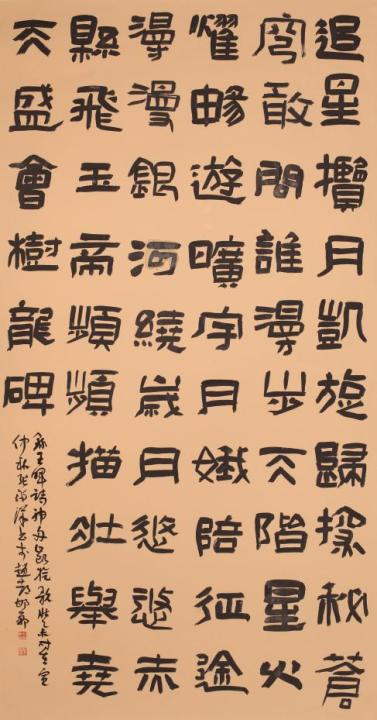 追星攢月凱旋歸探秘蒼
穹敢問誰漫步天階星火
耀暢遊曠宇月娥陪征途
漫漫銀河繞歲月悠悠赤
縣飛玉帝頻頻描壯舉堯
天盛會樹龍碑
詩神舟凱旋
仲秋